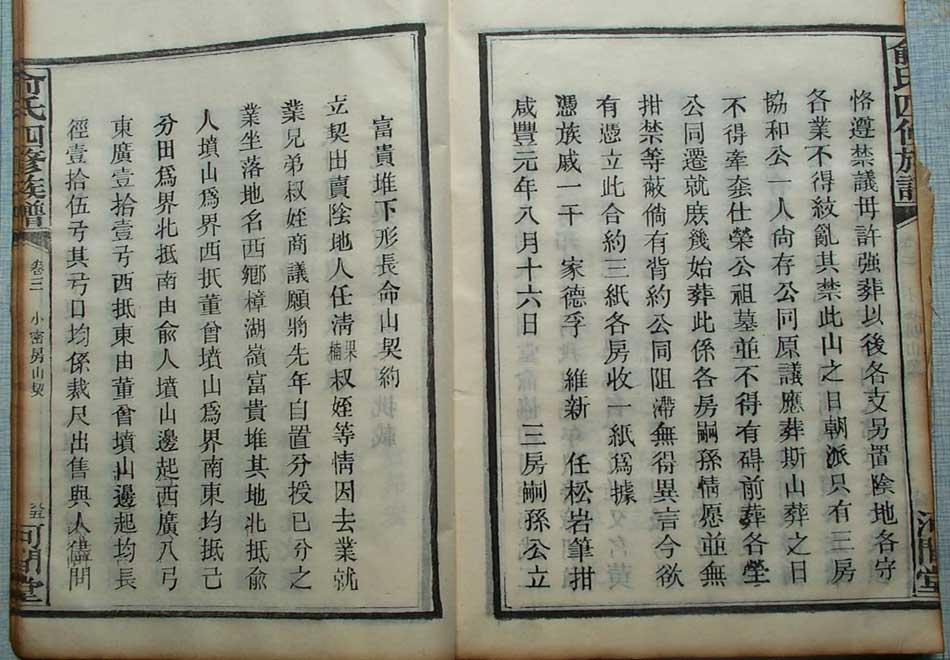 俞氏四修族譜
河間堂
恪遵禁議毋許强葬以後各支另置陰地各守
各業不得紋亂其禁此山之目朝派只有三房
協和公一人尙存公同原議應葬斯山葬之日
不得牽奩仕榮公祖墓並不得有碍前葬各塋
公同遷就庶幾始葬此係各房嗣孫情愿並無
拑禁等蔽倘有背約公同阻滯無得異言今欲
有憑立此合約三紙各房收一紙爲據
憑族戚一干 家德孚 維新 任松岩筆拑
咸豐元年八月十六日 三房嗣孫公立
富貴堆下形長命山契約
立契出賣陰地人任淸果楠叔姪等情因去業就
業兄弟叔姪商議願將先年自置分授已分之
業坐落地名西鄉樟湖嶺富貴堆其地北抵俞
人墳山爲界西抵董曾墳山爲界南東均抵己
分田爲界北抵南由俞人墳山邊起西廣八弓
東廣壹拾壹弓西抵東由董曾墳山邊起均長
徑壹拾伍弓其弓口均係裁尺出售與人儘問
俞氏四修族譜
卷三
小密房山契
河間堂